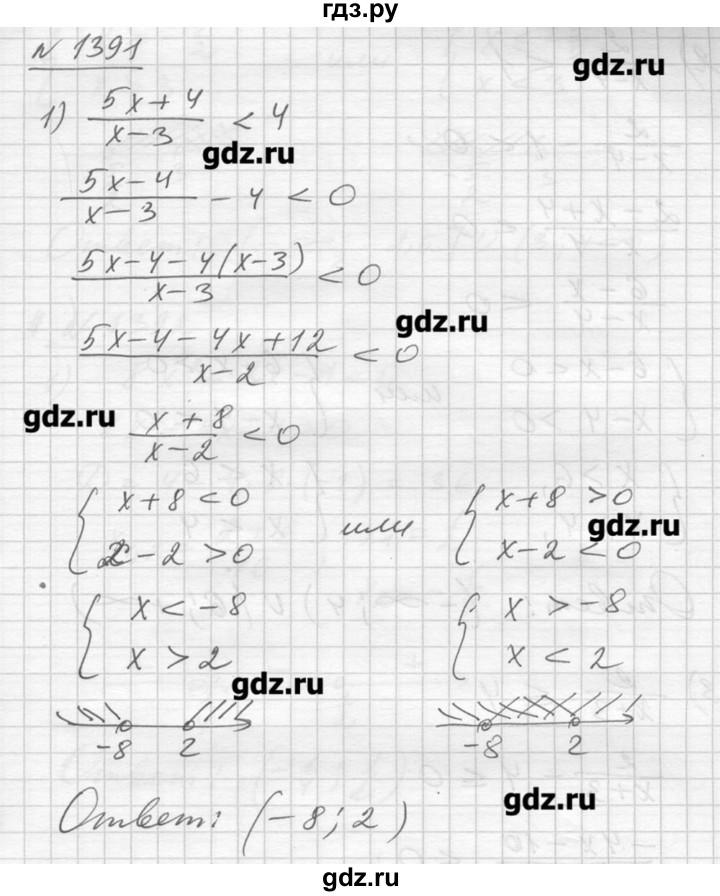 гдз.ру
N 1391
gdz.ru
1) (5x+4)/(x-3) < 4
gdz.ru
(5x-4)/(x-3) - 4 < 0
(5x-4-4(x-3))/(x-3) < 0
gdz.ru
(5x-4-4x+12)/(x-2) < 0
gdz.ru
(x+8)/(x-2) < 0
{ x+8<0 или { x+8>0
gdz.ru
x-2>0 x-2<0
{ x<-8 { x>-8
x>2 x<2
gdz.ru
-8 2 -8 2
gdz.ru
Ответ: (-8; 2)
gdz.ru